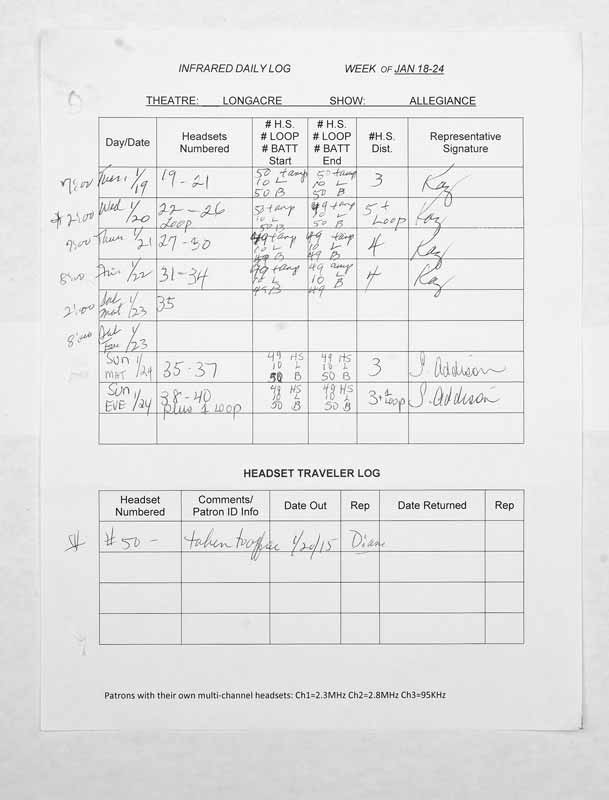 INFRARED DAILY LOG WEEK OF JAN 18-24
THEATRE: LONGACRE SHOW: ALLEGIANCE
Day/Date Headsets Numbered # H.S. # LOOP # BATT Start # H.S. # LOOP # BATT End #H.S. Dist. Representative Signature
7:00 Tues 1/19 19-21 50 tamp 10 L 50 B 50 tamp 10 L 50 B 3 Kay
2:00 Wed 1/20 22-26 Loop 50 tamp 10 L 50 B 49 tamp 10 L 50 B 5+ Loop Kay
7:00 Thurs 1/21 27-30 49 tamp 10 L 49 B 49 tamp 10 L 49 B 4 Kay
8:00 Fri 1/22 31-34 49 tamp 10 L 49 B 49 amp 10 L 49 B 4 Kay
2:00 Sat mat 1/23 35
8:00 Sat Eve 1/23
SUN MAT 1/24 35-37 49 HS 10 L 50 B 49 HS 10 L 50 B 3 J. Addison
SUN EVE 1/24 38-40 plus 1 Loop 49 HS 10 L 50 B 49 HS 10 L 50 B 3+1 Loop J. Addison
HEADSET TRAVELER LOG
Headset Numbered Comments/ Patron ID Info Date Out Rep Date Returned Rep
# #50- taken to office 1/20/15 Diane
Patrons with their own multi-channel headsets: Ch1=2.3MHz Ch2=2.8MHz Ch3=95KHz